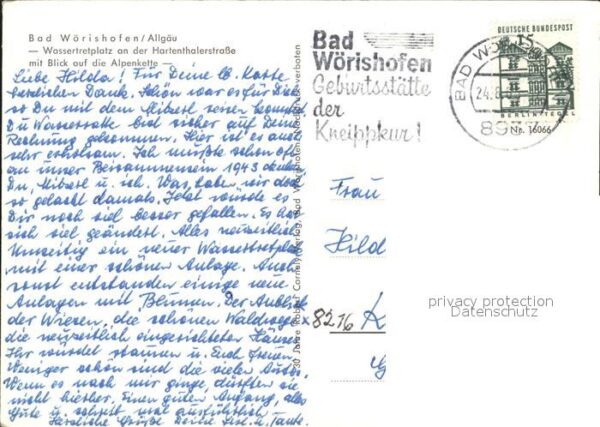 Bad Wörishofen/Allgäu
— Wassertretplatz an der Hartenthalerstraße
mit Blick auf die Alpenkette —
Liebe Hilda! Für Deine lb. Karte
herzlichen Dank. Schön war es für Dich
so Du mit dem
Du sicher auf Deine
Rechnung gekommen. Hier ist es auch
sehr erholsam. Ich mußte schon oft
an unser Beisammensein 1943 denken
Du, u. ich. Was haben wir doch
so gelacht damals. Jetzt würde es
Dir noch viel besser gefallen. Es hat
sich viel geändert. Alles neuzeitlich
ein neuer Wassertretplatz
mit einer schönen Anlage. Auch
sonst entstanden einige neue
Anlagen mit Blumen. Der Anblick
der Wiesen, die schönen Waldwege
die neuzeitlich eingerichteten Häuser
Ihr würdet staunen u. Euch freuen
Weniger schön sind die vielen Autos.
Wenn es nach mir ginge, dürften sie
nicht hierher. Einen guten Anfang, alles
Gute u. schreibt mal ausführlich
Herzliche Grüße Deine u. Tante.
Bad
Wörishofen
Geburtsstätte
der
Kneippkur!
BAD WÖ
24.8
893
DEUTSCHE BUNDESPOST
15
BERLIN-TEGEL
Nr. 16066
Frau
Hild
8216 K
privacy protection
Datenschutz